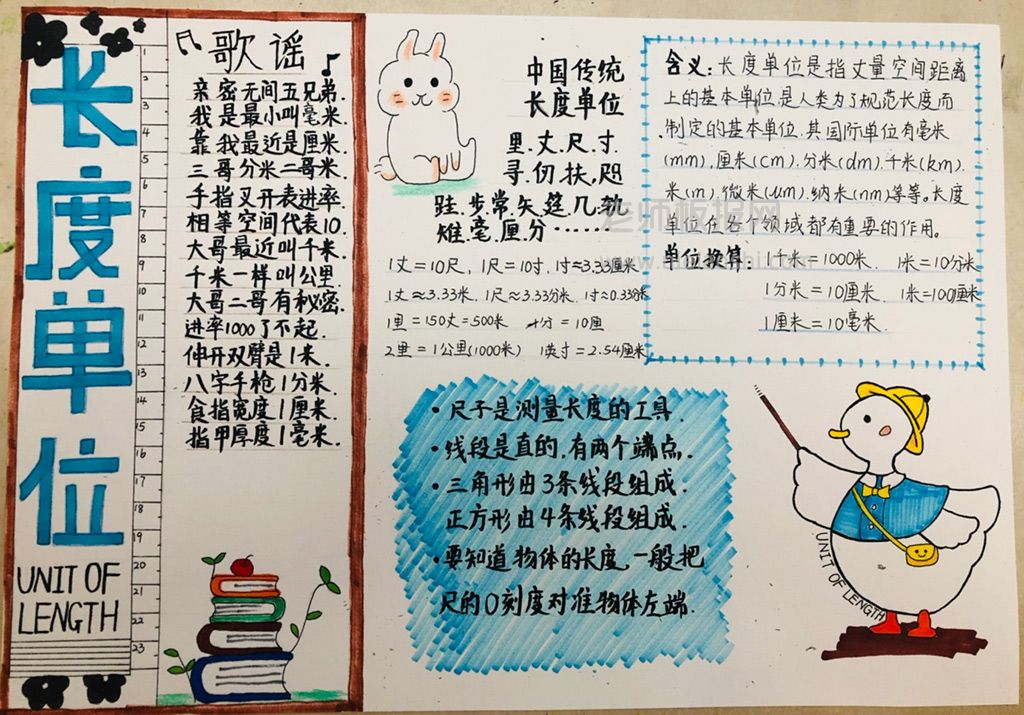 长度单位
UNIT OF
LENGTH
1
2
3
4
5
6
7
8
9
10
11
12
13
14
15
16
17
18
19
20
21
22
23
歌谣
亲密无间五兄弟.
我是最小叫毫米.
靠我最近是厘米.
三哥分米二哥米.
手指叉开表进率.
相等空间代表10.
大哥最近叫千米.
千米一样叫公里.
大哥二哥有秘密.
进率1000了不起.
伸开双臂是1米.
八字手枪1分米.
食指宽度1厘米.
指甲厚度1毫米.
中国传统
长度单位
里.丈.尺.寸.
寻.仞.扶.咫
跬.步.常.矢.筵.几.轨.
雉.毫.厘.分……
1丈=10尺, 1尺=10寸, 1寸≈3.33厘米
1丈≈3.33米. 1尺≈3.33分米. 1寸≈0.33分米
1里=150丈=500米 1分=10厘
2里=1公里(1000米) 1英寸=2.54厘米
含义:长度单位是指丈量空间距离
上的基本单位.是人类为了规范长度而
制定的基本单位.其国际单位有毫米
(mm).厘米(cm).分米(dm).千米(km).
米(m).微米(μm).纳米(nm)等等。长度
单位在各个领域都有重要的作用。
单位换算: 1千米=1000米. 1米=10分米
1分米=10厘米. 1米=100厘米
1厘米=10毫米.
老师板报网
•尺子是测量长度的工具.
•线段是直的.有两个端点.
•三角形由3条线段组成.
正方形由4条线段组成.
•要知道物体的长度,一般把
尺的0刻度对准物体左端.
UNIT OF LENGTH